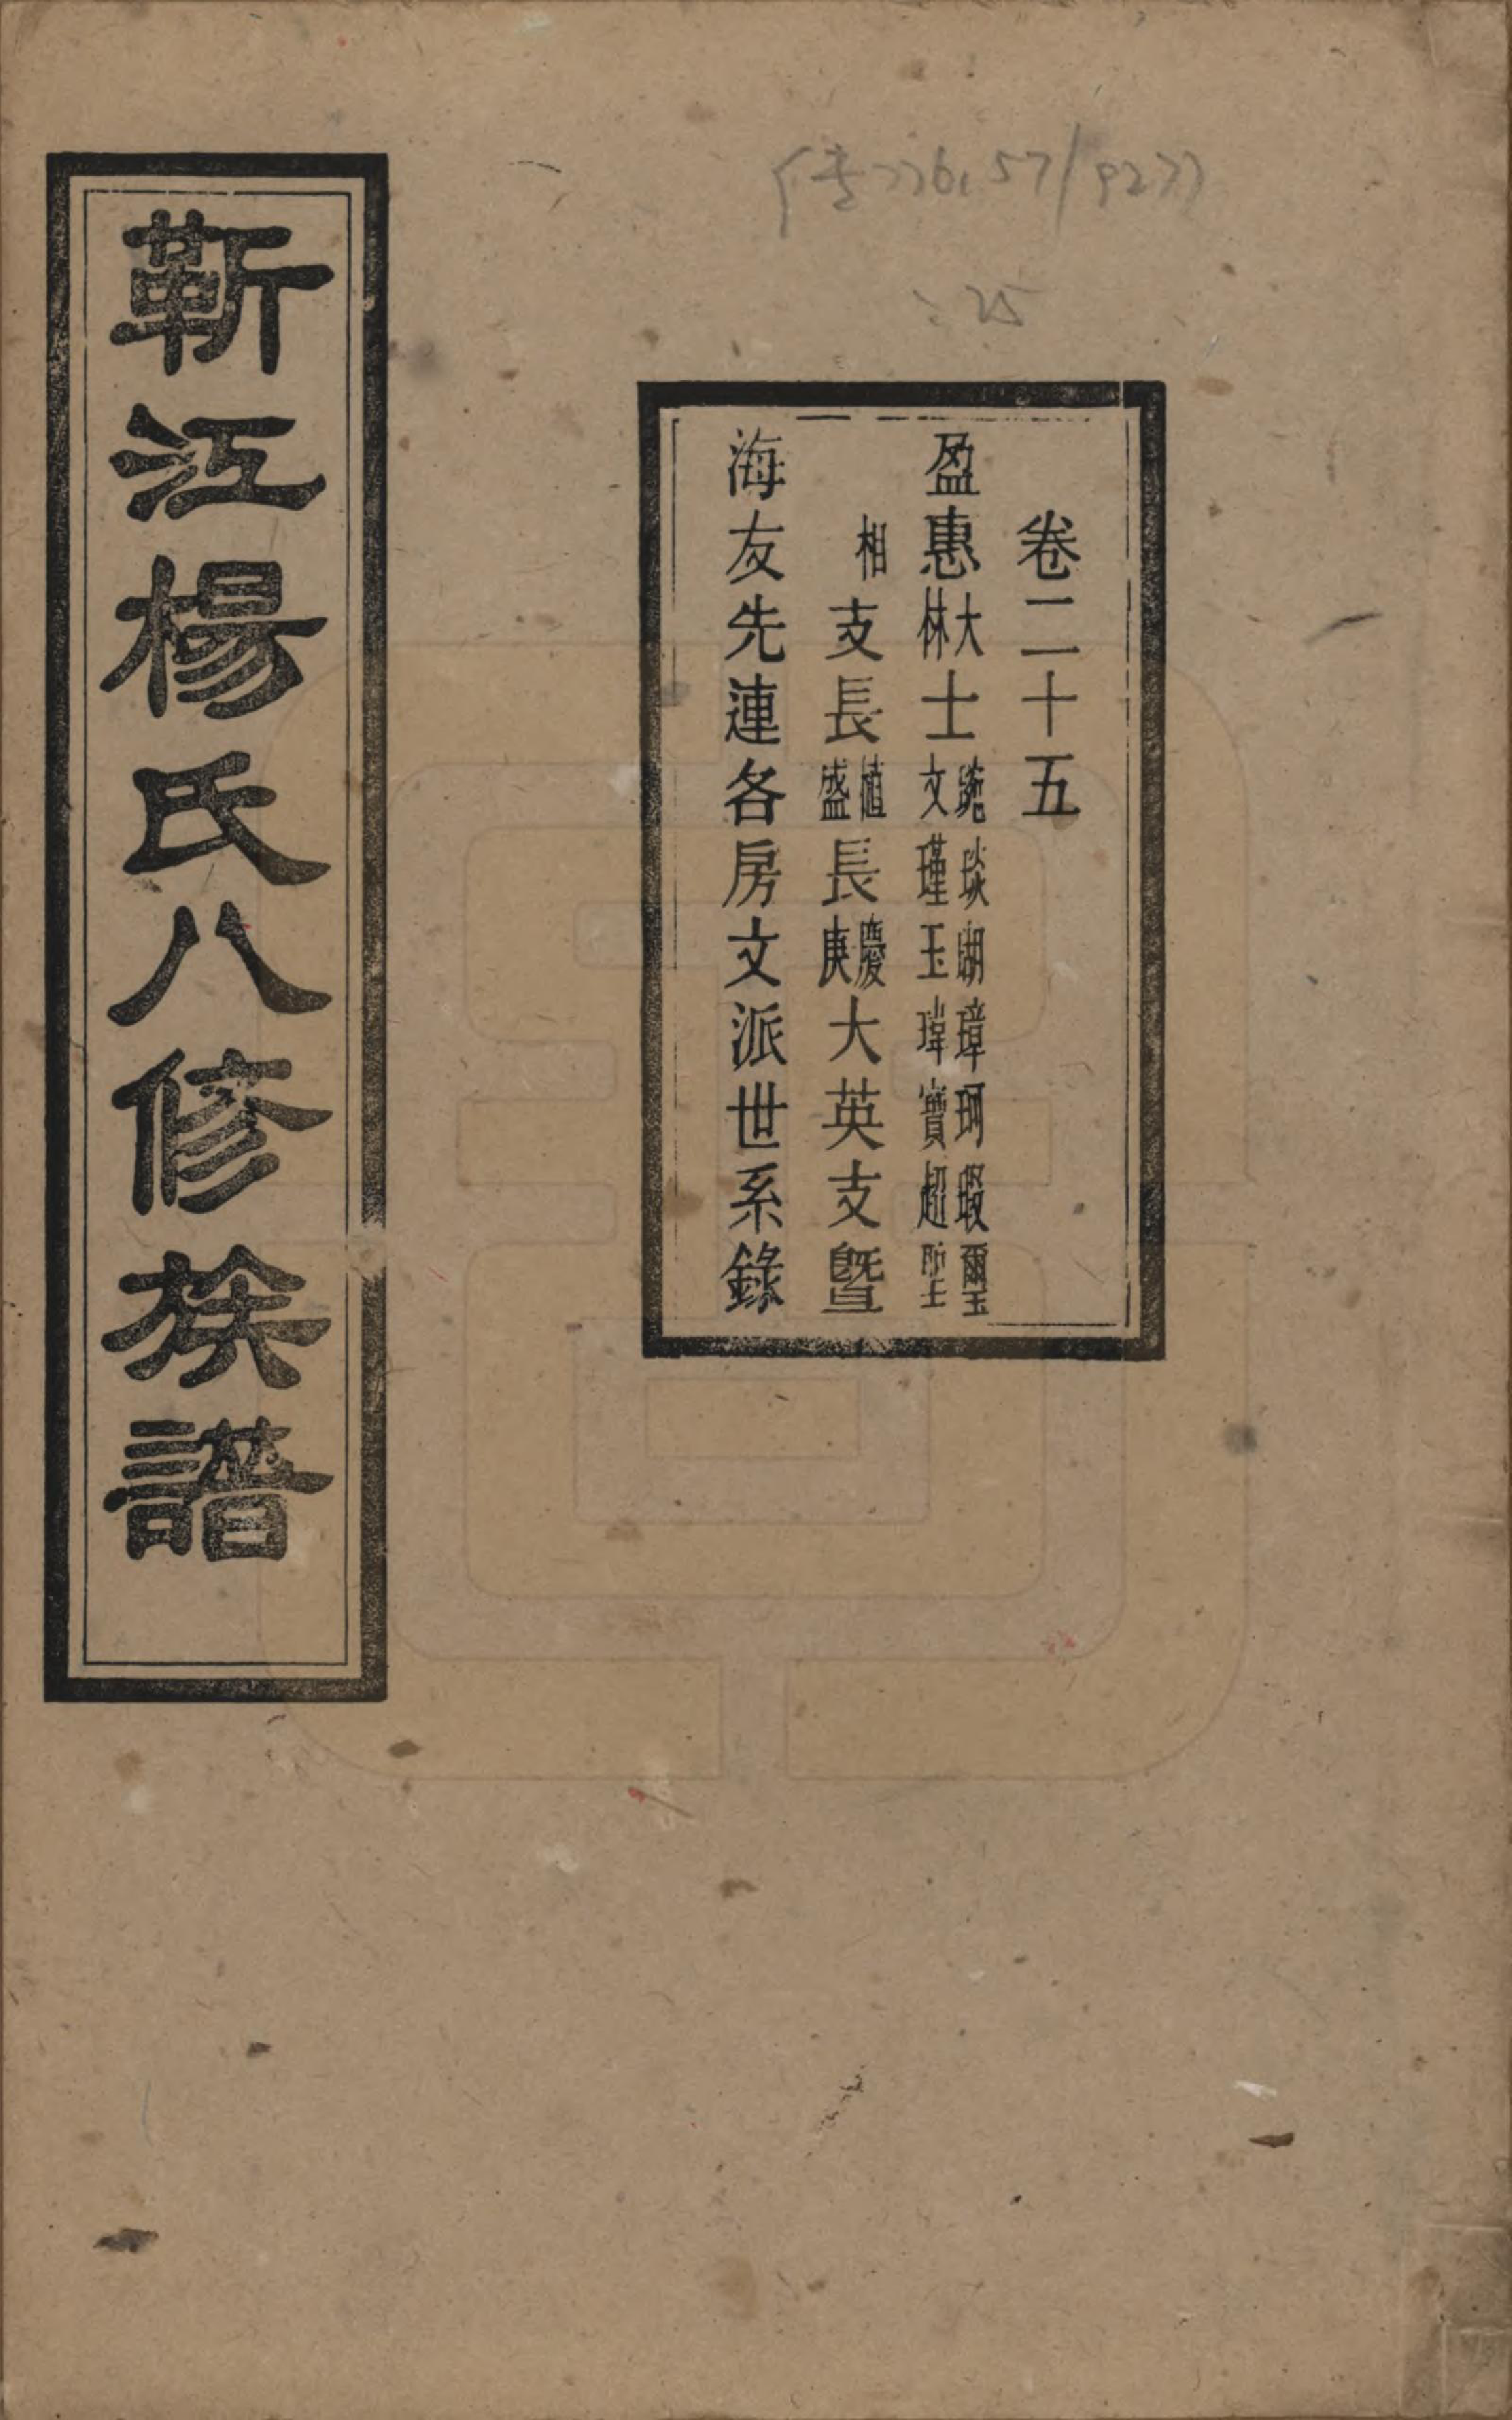 卷二十五
盈惠大林士琬琰湖璋珂瑕璽文瑾玉瑋寶超
相支長植盛長慶庚大英支暨
海友先連各房文派世系錄
靳江楊氏八修族譜